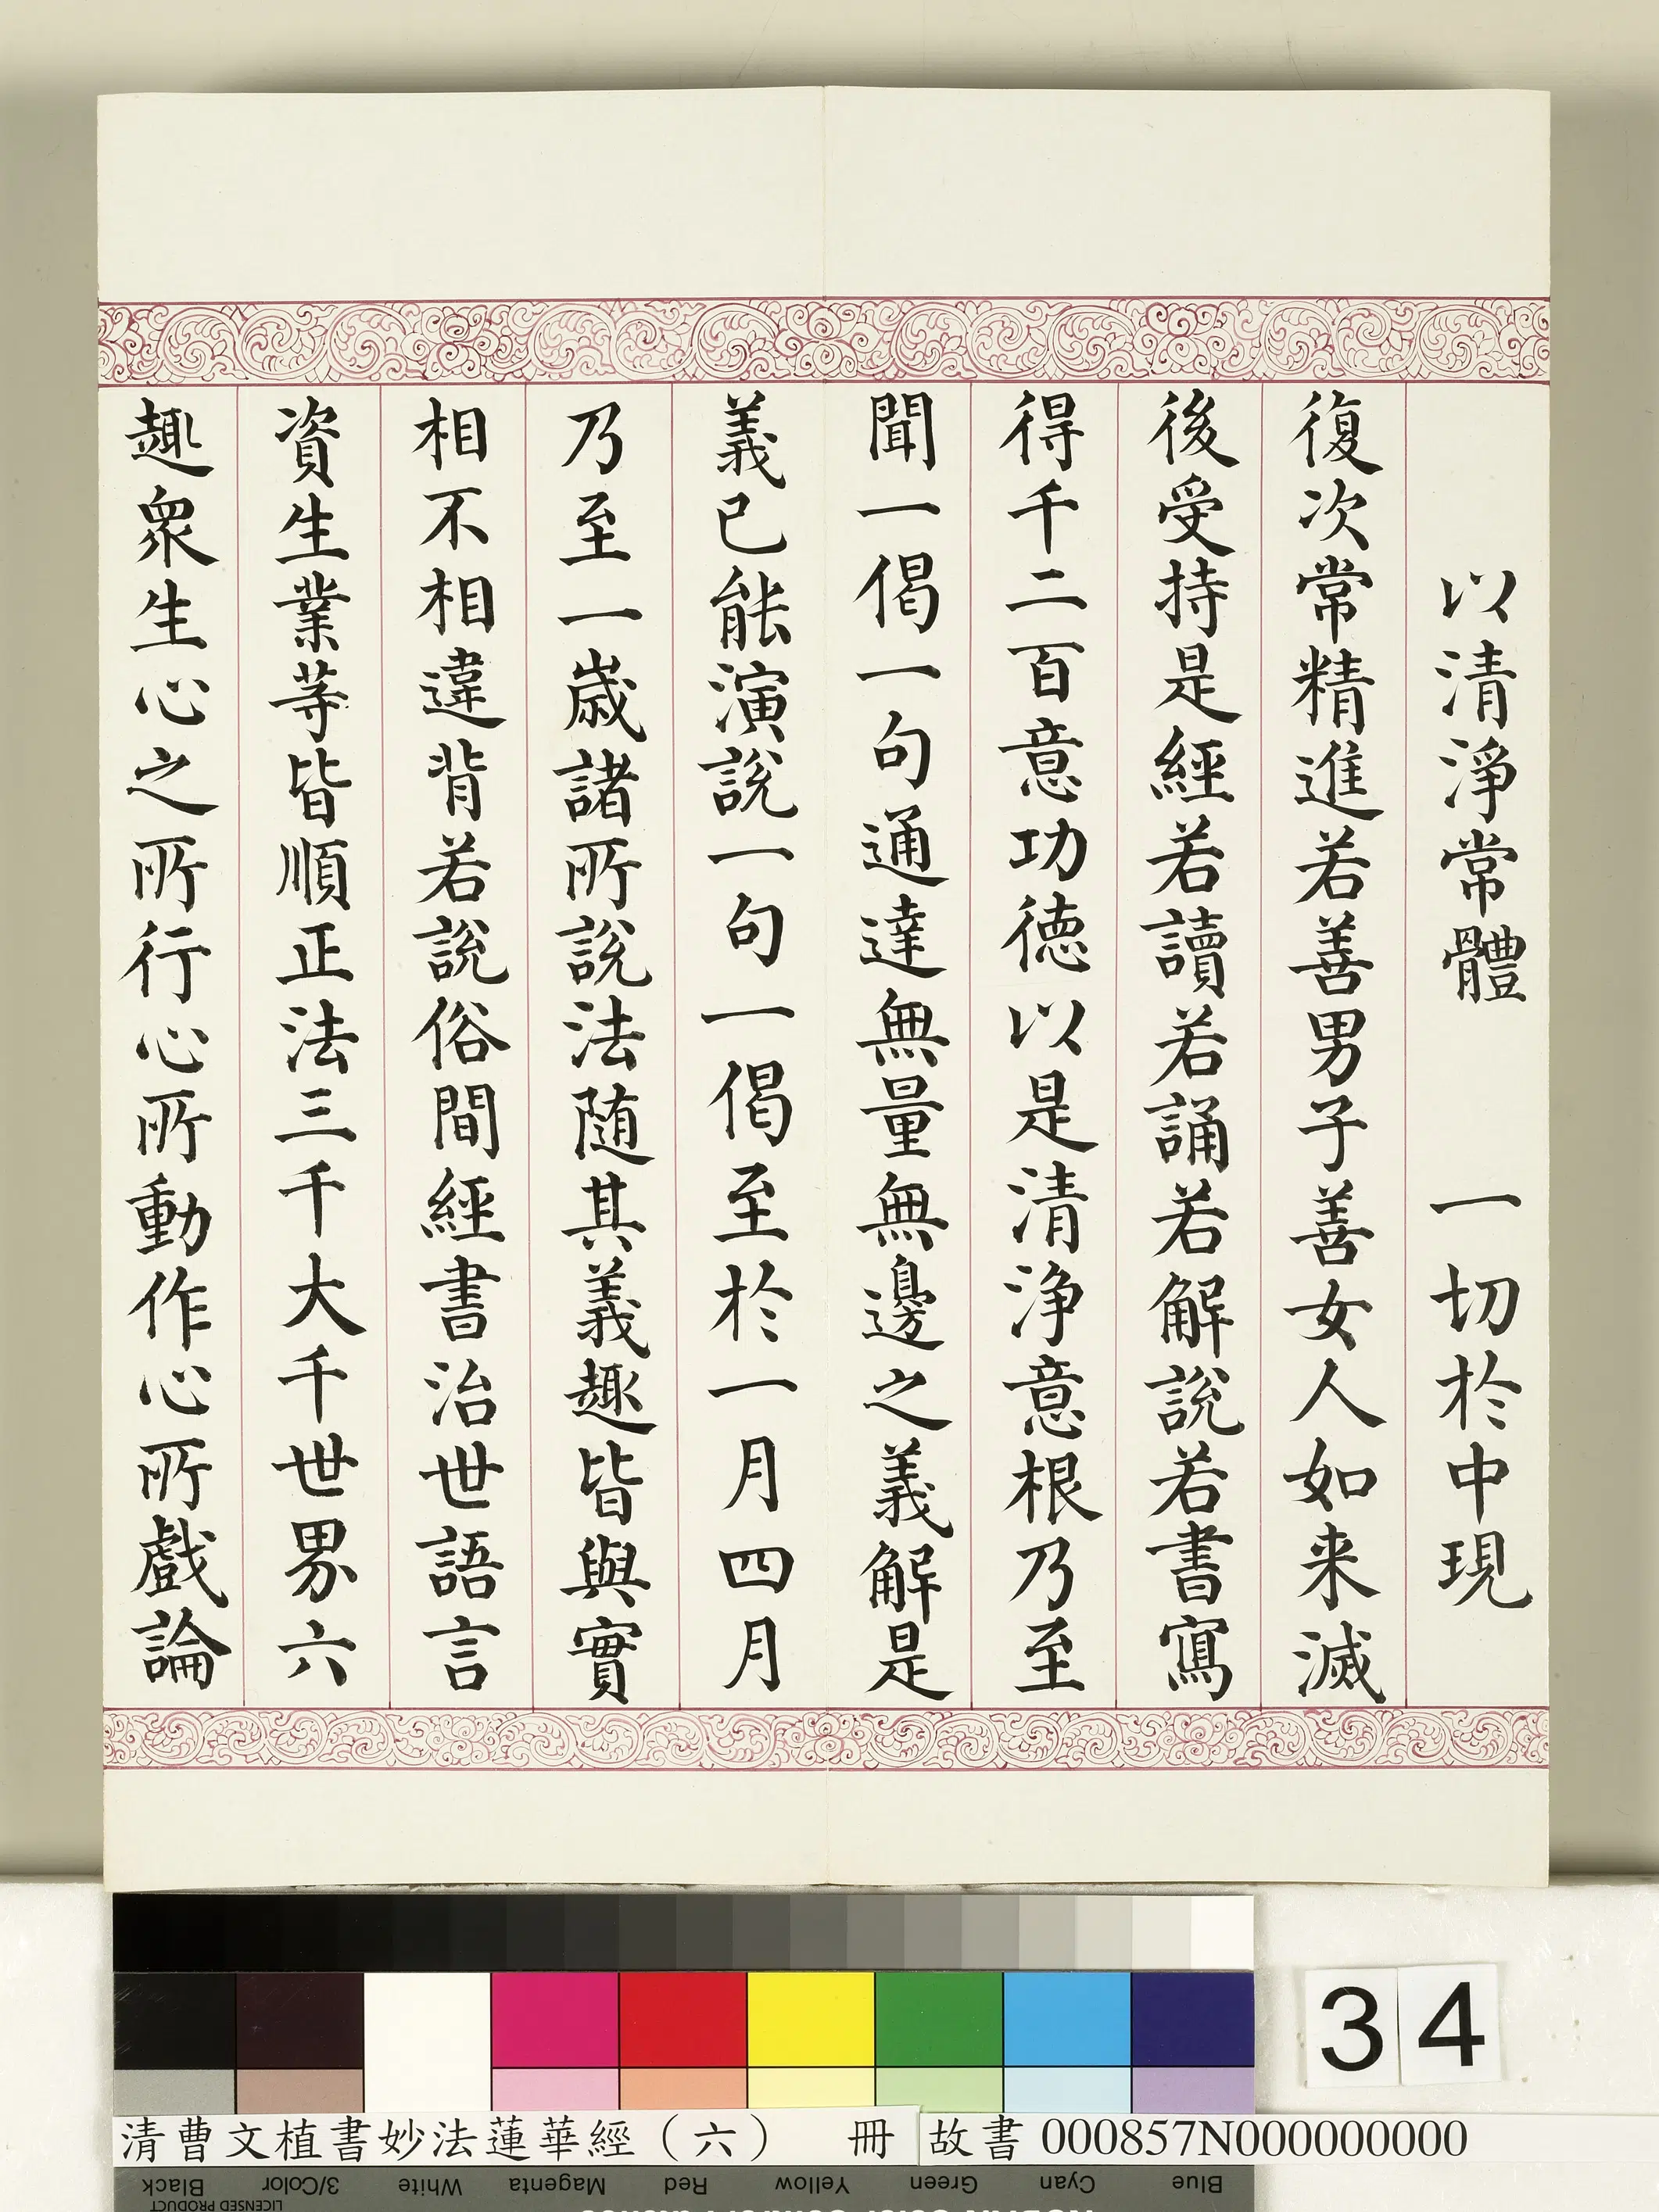 以清淨常體　一切於中現
復次常精進若善男子善女人如来滅
後受持是經若讀若誦若解說若書寫
得千二百意功德以是清淨意根乃至
聞一偈一句通達無量無邊之義解是
義已能演說一句一偈至於一月四月
乃至一歲諸所說法隨其義趣皆與實
相不相違背若說俗間經書治世語言
資生業等皆順正法三千大千世界六
趣衆生心之所行心所動作心所戲論
34
清曹文植書妙法蓮華經（六）　冊
故書 000857N000000000
Black 3/Color White Magenta Red Yellow Green Cyan Blue
LICENSED PRODUCT